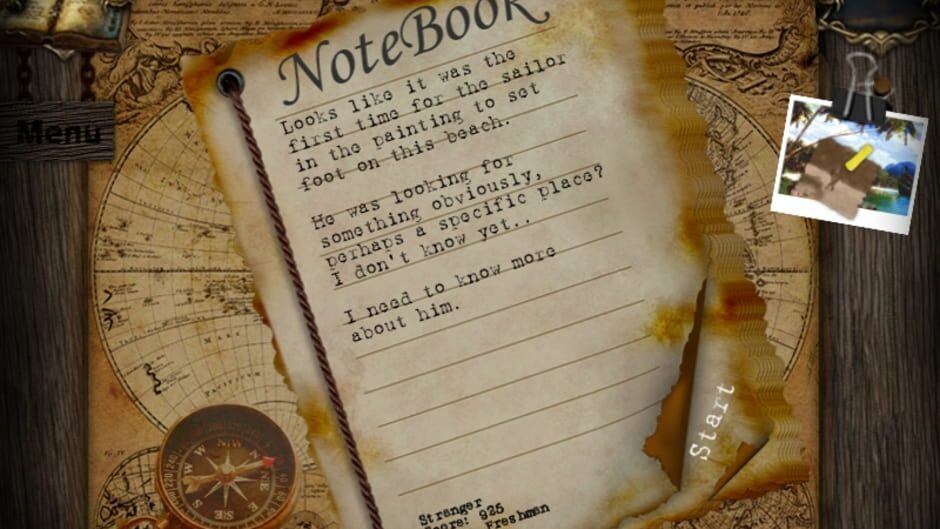 NoteBook
Looks like it was the
first time for the sailor
in the painting to set
foot on this beach.
He was looking for
something obviously,
perhaps a specific place?
I don't know yet..
I need to know more
about him.
Menu
Start
Stranger
Score: 925
Freshman